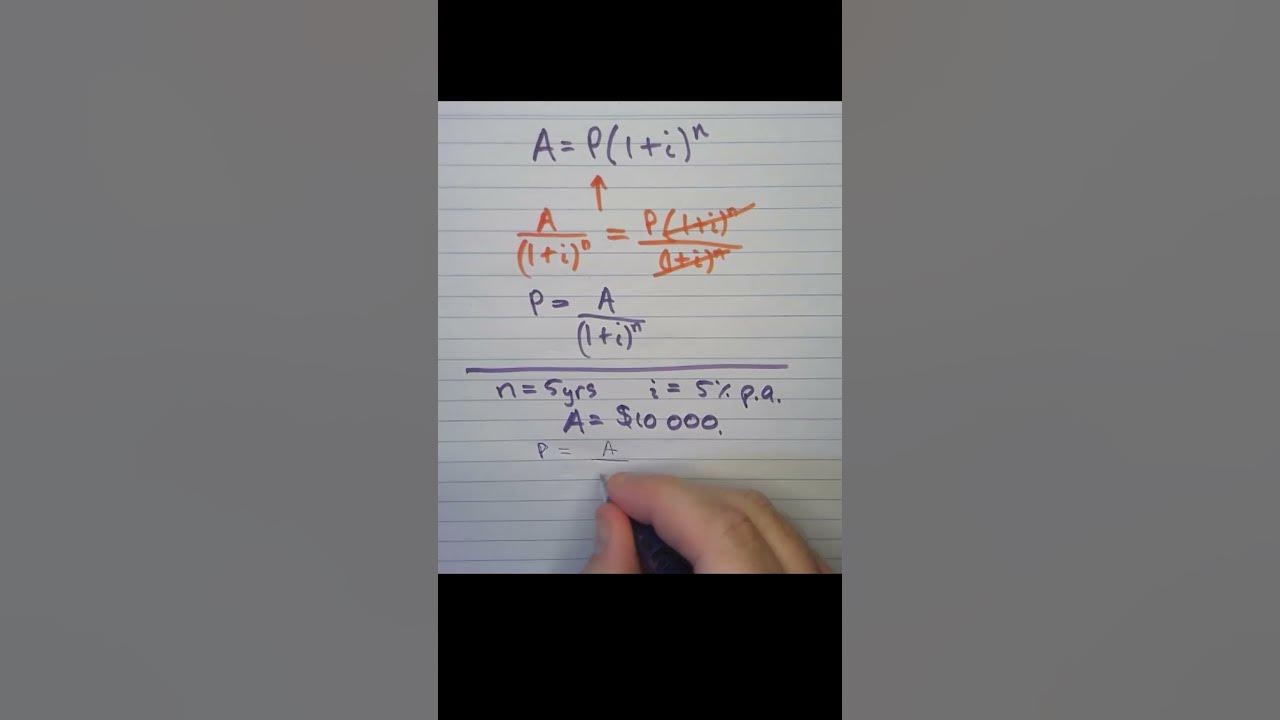 A = P(1+i)^n
A/(1+i)^n = P(1+i)^n/(1+i)^n
P = A/(1+i)^n
n = 5yrs i = 5% p.a.
A = $10 000.
P = A